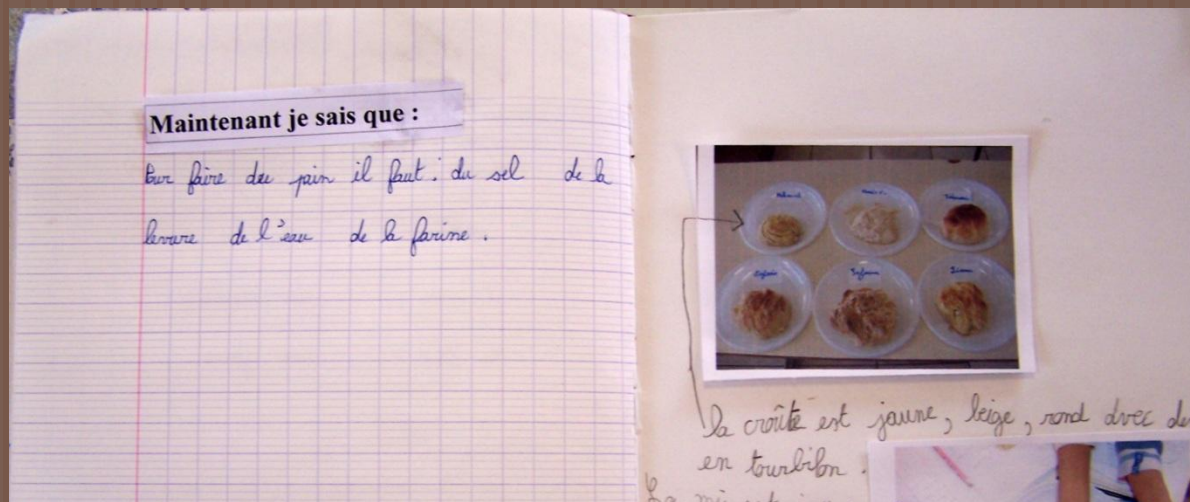 Maintenant je sais que :
Pour faire du pain il faut : du sel de la
levure de l'eau de la farine .
la croûte est jaune, beige, rond avec de
en tourbilon .
La